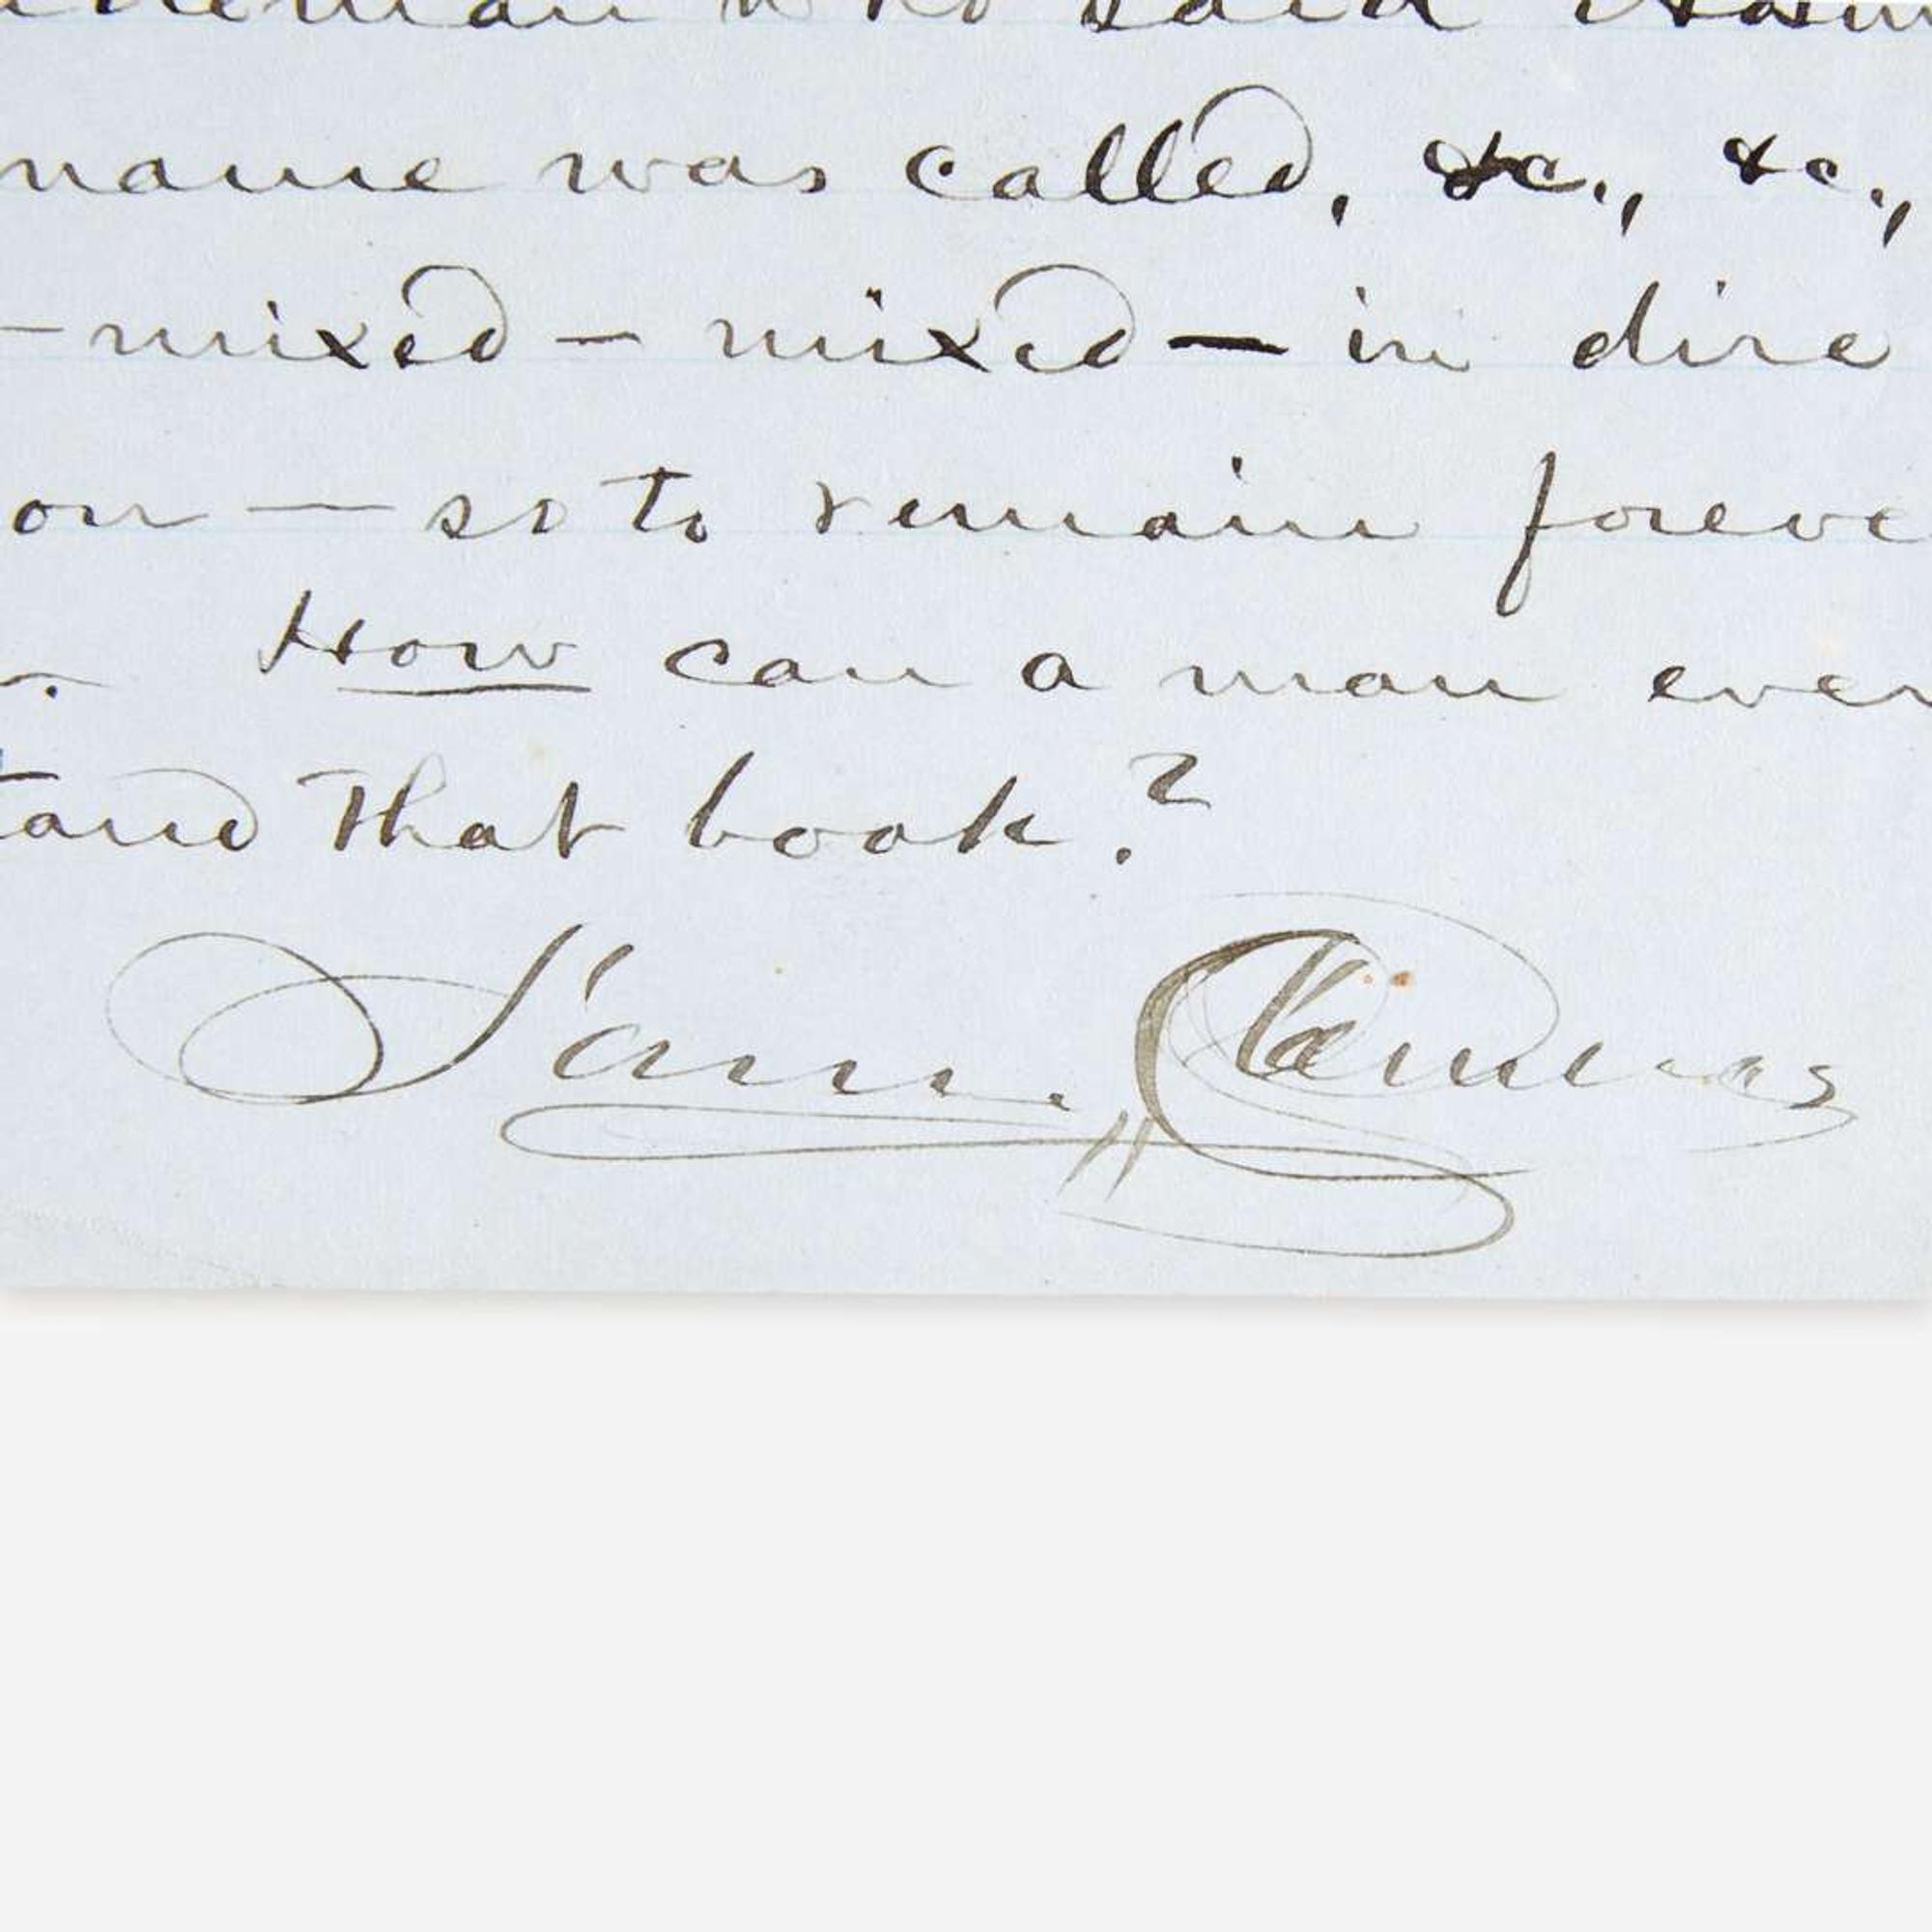 who said
name was called, &c., &c.,
– mixed – mixed – in dire
on — so to remain foreve
. How can a man ever
tand that book?
Sam. Clemens